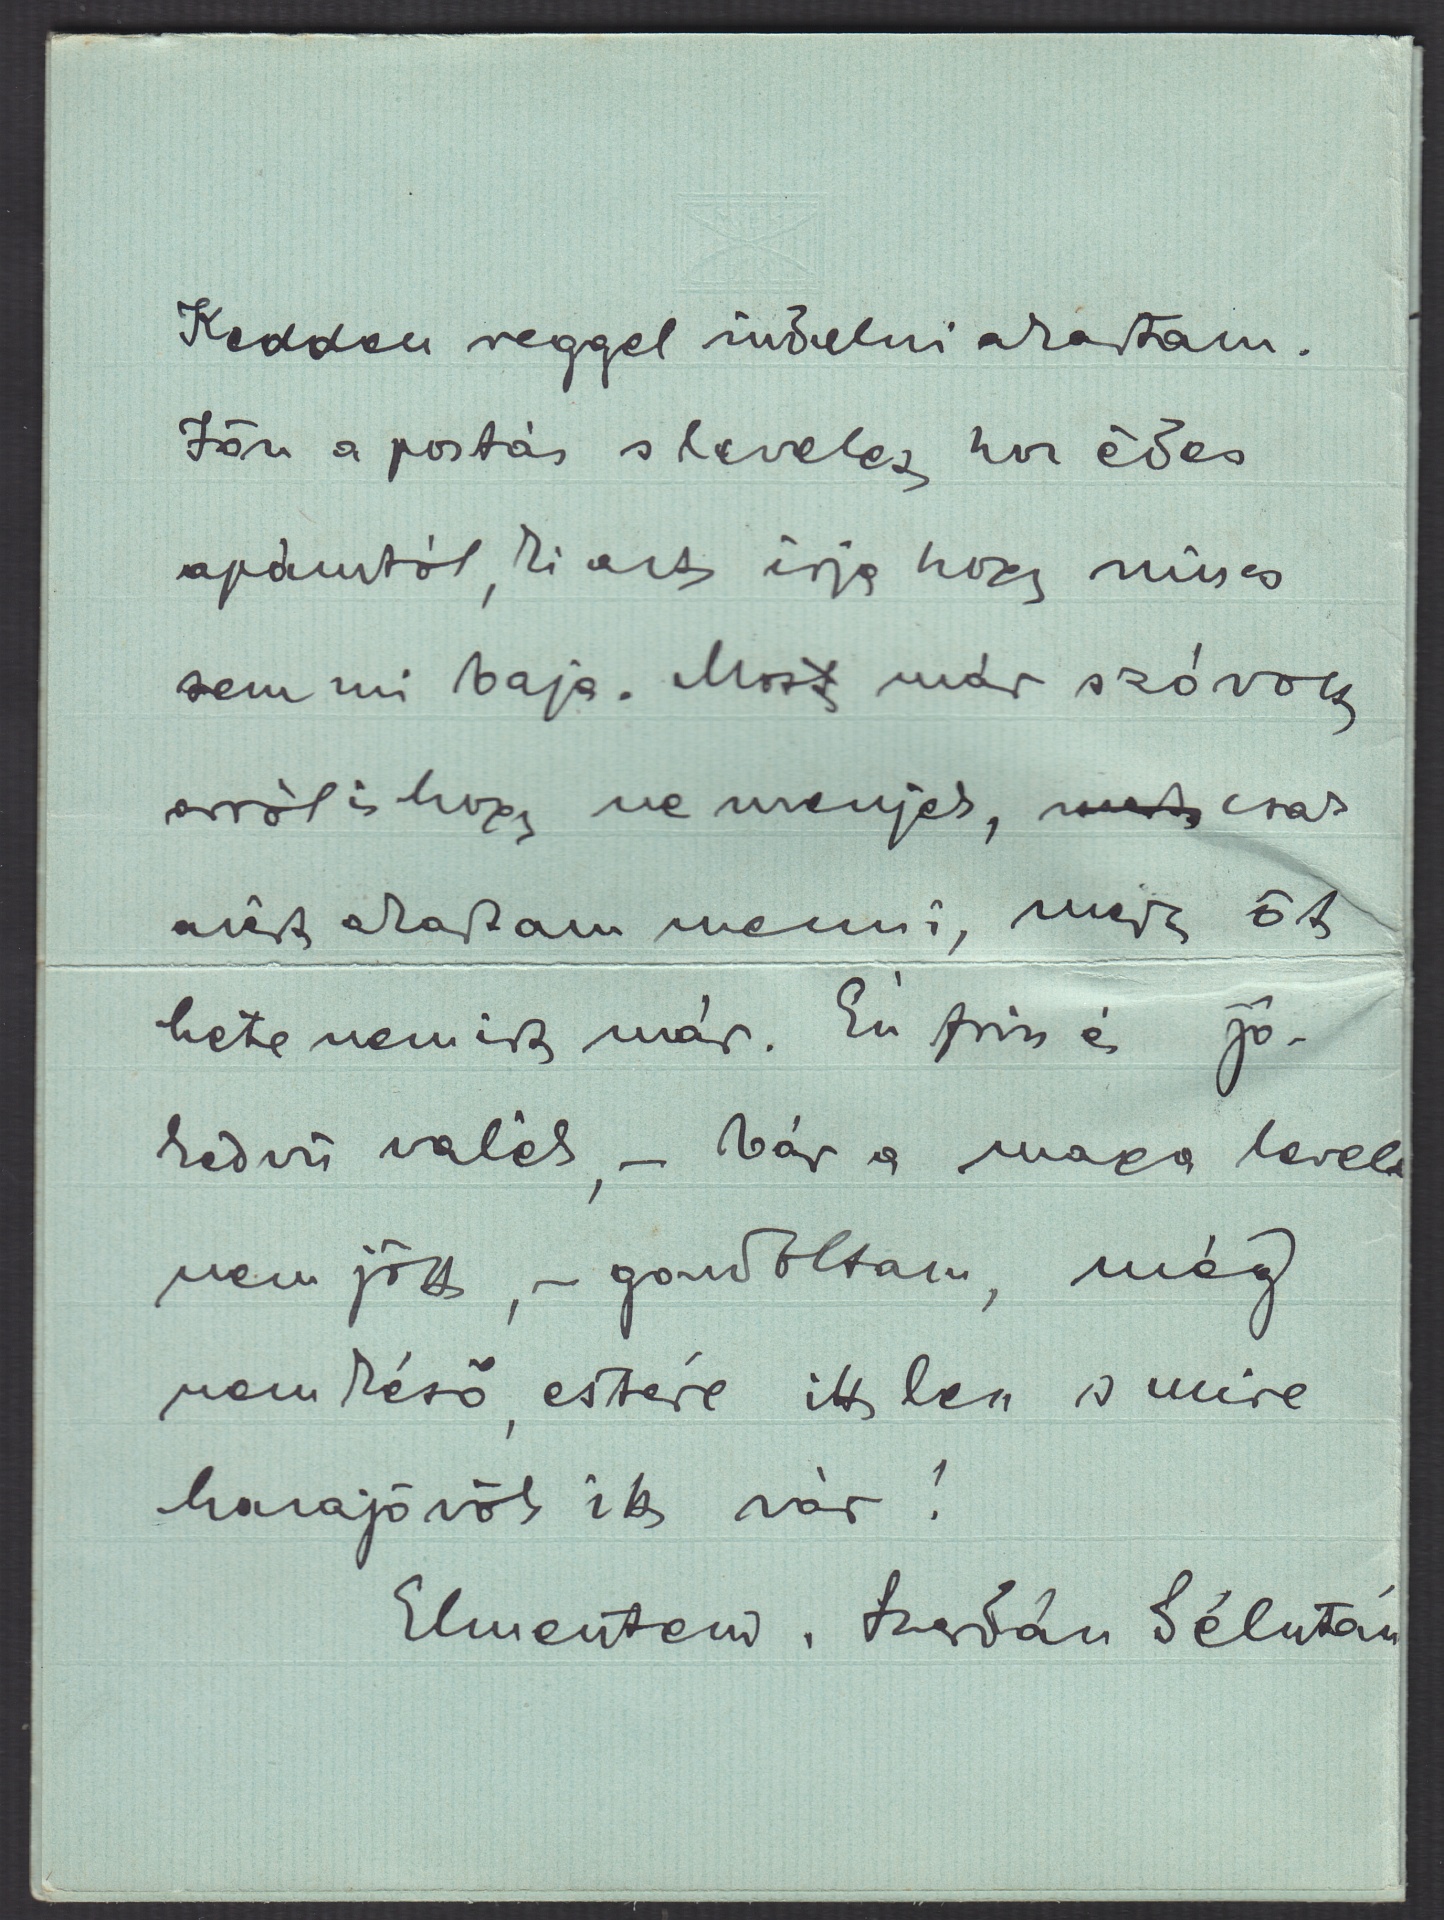 Kedden reggel indulni akartam.
Jön a postás s levelet hoz édes
apámtól, ki azt írja hogy nincs
semmi baja. Most már szó volt
arról is hogy ne menjek, csak
azért akartam menni, mert öt
hete nem írt már. Én friss és jó-
kedvü valék, – bár a maga levele
nem jött, – gondoltam, még
nem késő, estére itt lesz s mire
hazajövök itt vár!
Elmentem. Szerdán délután